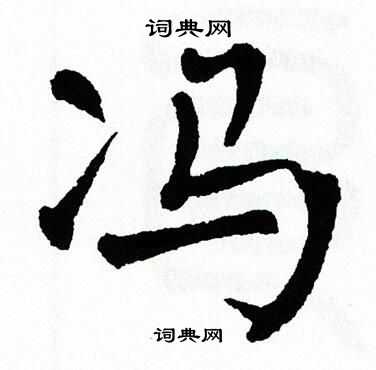 词典网
冯
词典网